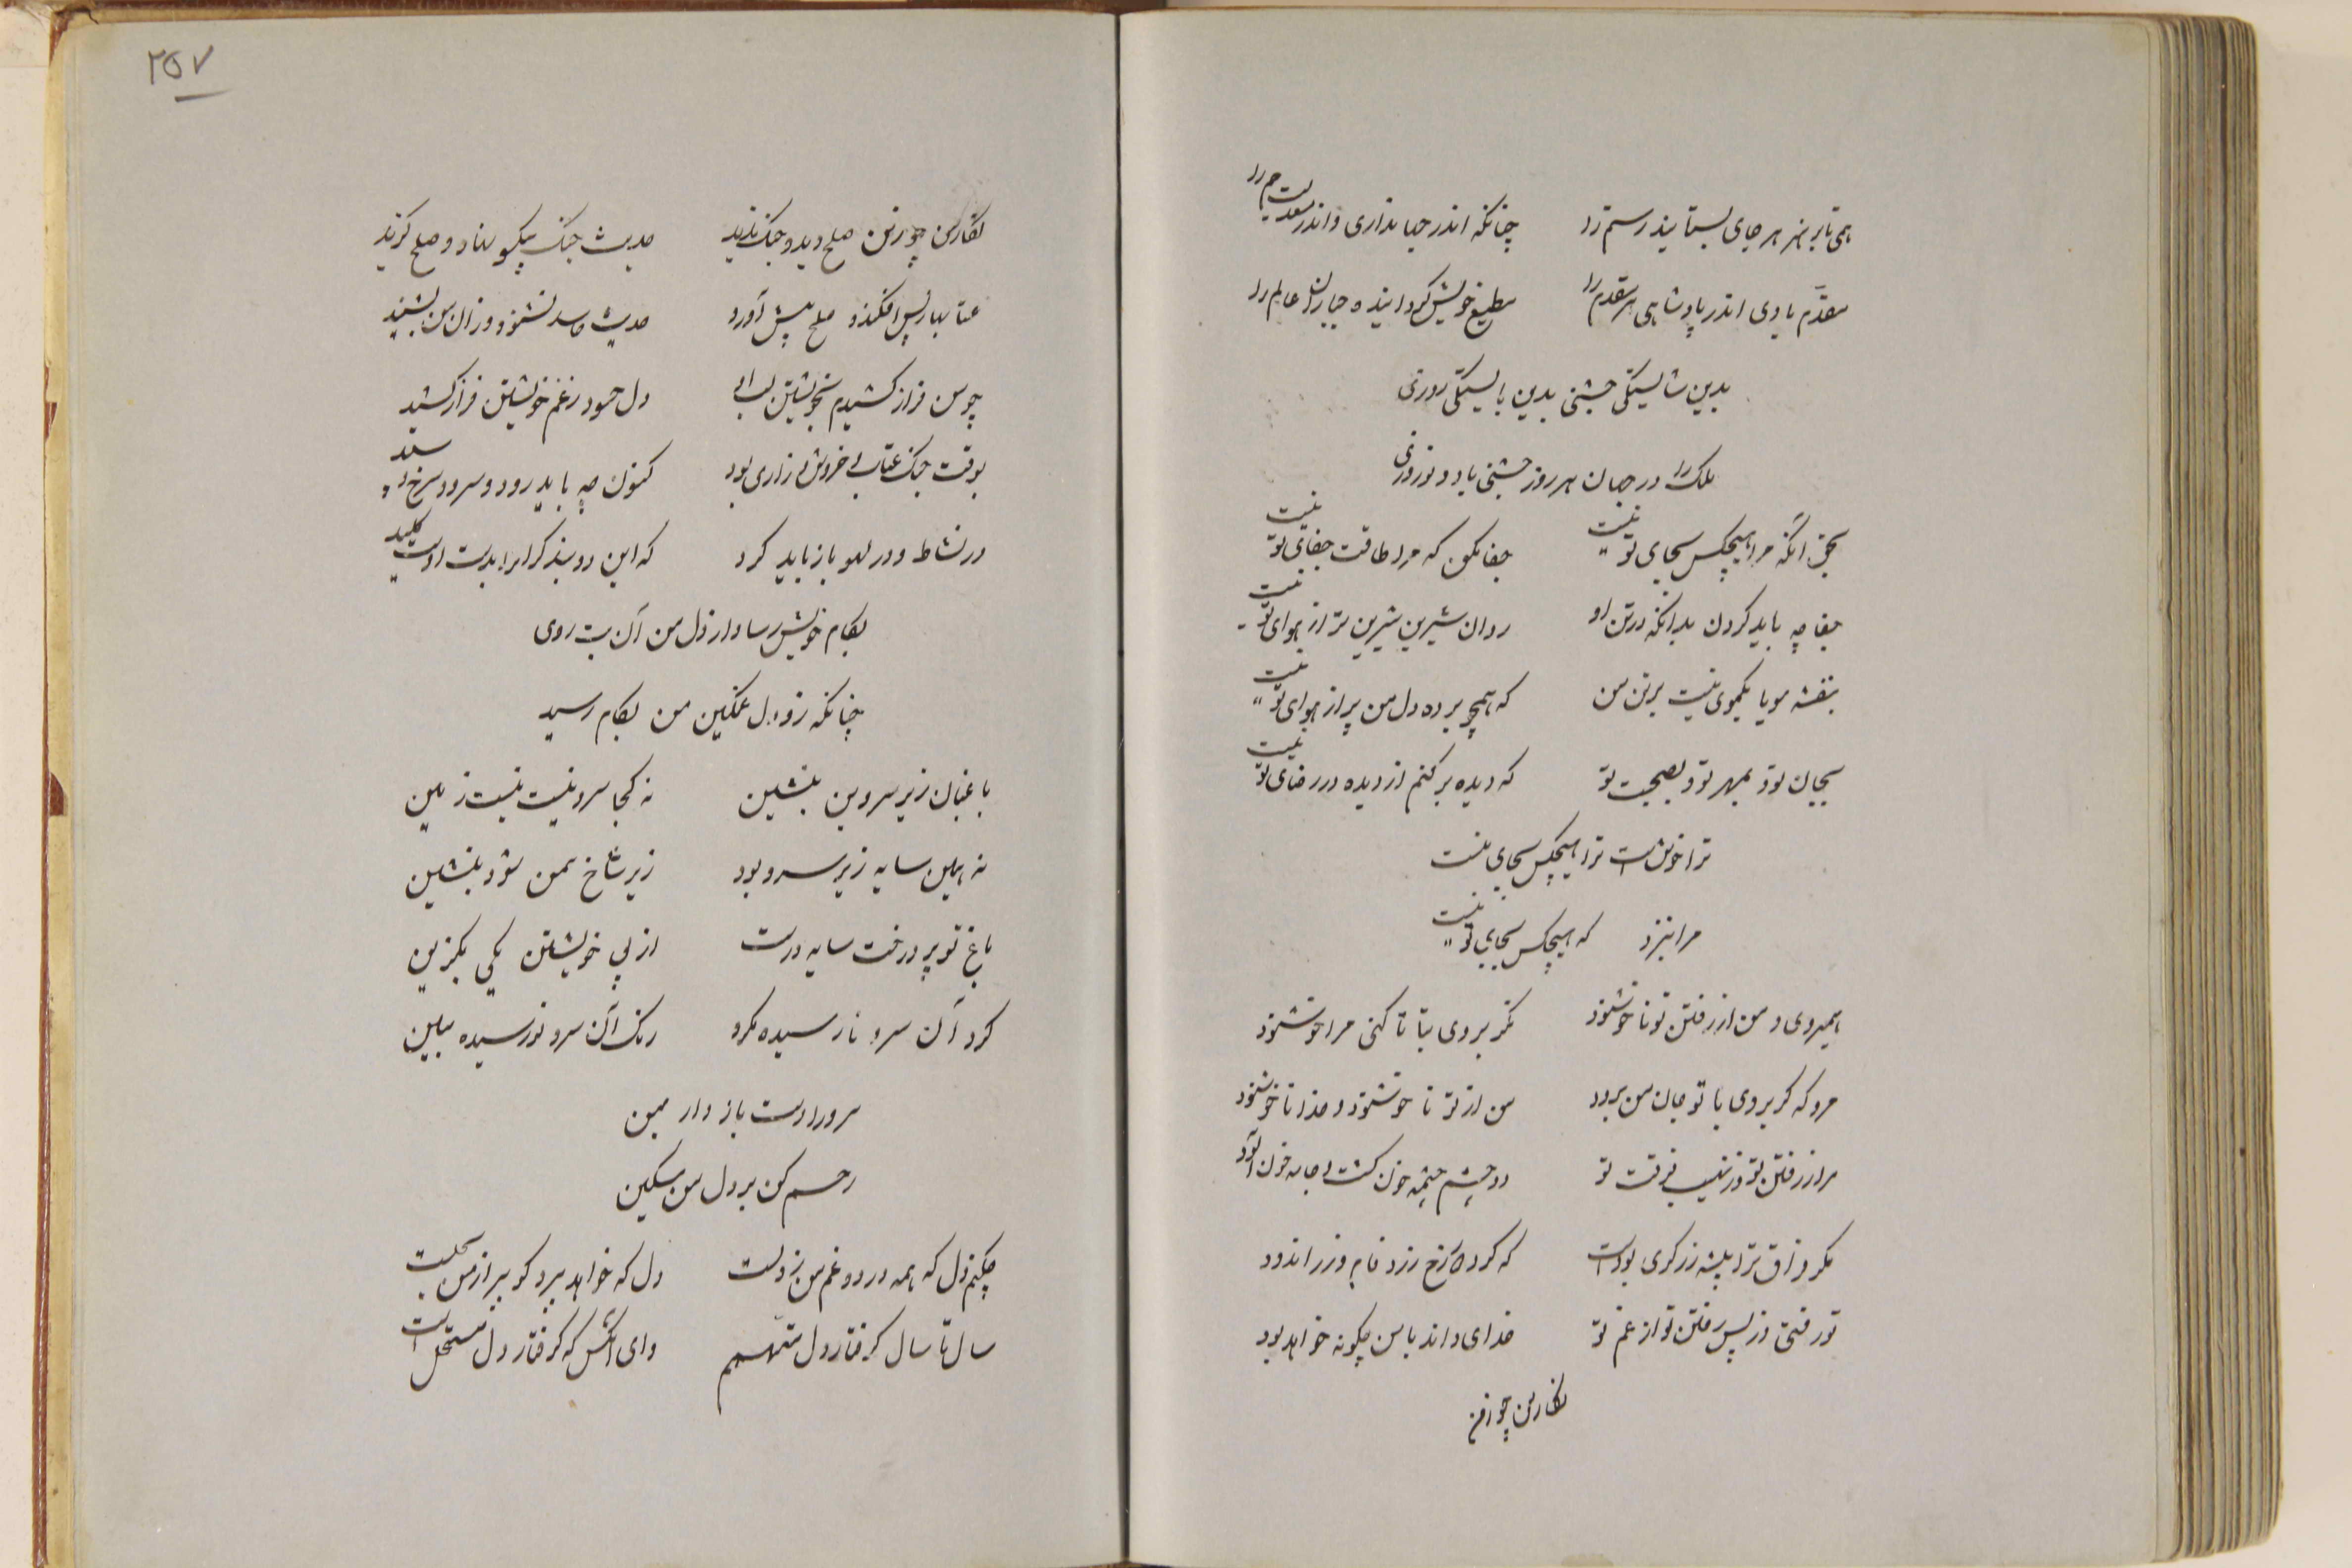 همی تا بر هنر هر جای بستایند رستم را چنانکه اندر جهانداری و اندر مملکت جم را
مقدّم بادی اندر پادشاهی هر مقدم را مطیع خویش گردانیده جباران عالم را
بدین شایستگی جشنی بدین بایستگی روزی
ملک را در جهان هر روز جشنی باد و نوروزی
بحق آنکه مرا هیچکس بجای تو نیست جفا مکن که مرا طاقت جفای تو نیست
جفا چه باید کردن بدانکه در تن او روان شیرین شیرین تر از هوای تو نیست
بنفشه مویا یکموی نیست بر تن من که همچو برده دل من پر از هوای تو نیست
بجان تو و بمهر تو و بصحبت تو که دیده برکنم از دیده در رضای تو نیست
ترا خوش است ترا هیچکس بجای نیست
مرا بتزد که هیچکس بجای تو نیست
همیروی و من از رفتن تو ناخوشنود نگر بروی بتا تا کنی مرا خوشنود
مرو که گر بروی با تو جان من برود من از تو ناخوشنود و خدا ناخوشنود
مرا ز رفتن تو وز نهیب فرقت تو دو چشم چشمه خون گشت و جامه خون آلود
مگر فراق ترا پیشه زرگری بودست که کرد رخ زرد فام و زر اندود
تو رفتی و ز پس رفتن تو از غم تو خدای داند با من چگونه خواهد بود
نگارین چو زمن
۲۵۷
نگارین چو زمن صلح دید و جنگ ندید حدیث جنگ بیکسو نهاد و صلح گزید
عتابها ز پس افکند و صلح پیش آورد حدیث حاسد نشنود و زان من بشنید
چو من فراز کشیدم بخویشتن لب او دل حسود ز غم خویشتن فراز کشید
بوقت جنگ عتاب و خروش و زاری بود کنون چه باید رود و سرود سرخ و
در نشاط و در لهو باز باید کرد که این دو بند گران را بدست اوست کلید
بکام خویش رساد از دل من آن بت روی
چنانکه زو دل غمگین من بکام رسید
باغبان زیر سرو بن بنشین نه کجا سرو نیست نیست زمین
نه همین سایه زیر سرو بود زیر شاخ سمن شو و بنشین
باغ تو پر درخت سایه ورست از پی خویشتن یکی بگزین
گرد آن سرو نارسیده مگرد رنگ آن سرو نورسیده مبین
سرو را دست باز دار بمن
رحم کن بر دل من مسکین
چکنم دل که همه درد و غم من ز دلست دل که خواهد ببرد گو ببر از من بحلست
سال تا سال گرفتار دل متهمم وای آنکس که گرفتار دل مستحل است